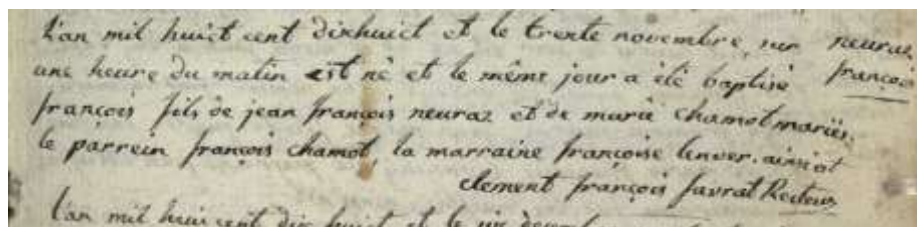 L'an mil huict cent dixhuict et le trente novembre, sur neuraz
une heure du matin est né et le même jour a été baptisé françois
françois fils de jean françois neuraz et de marie chamot mariés.
le parrein françois chamot, la marraine françoise ainsi est
clement françois favrat Recteur
L'an mil huict cent dix huict et le six decembre